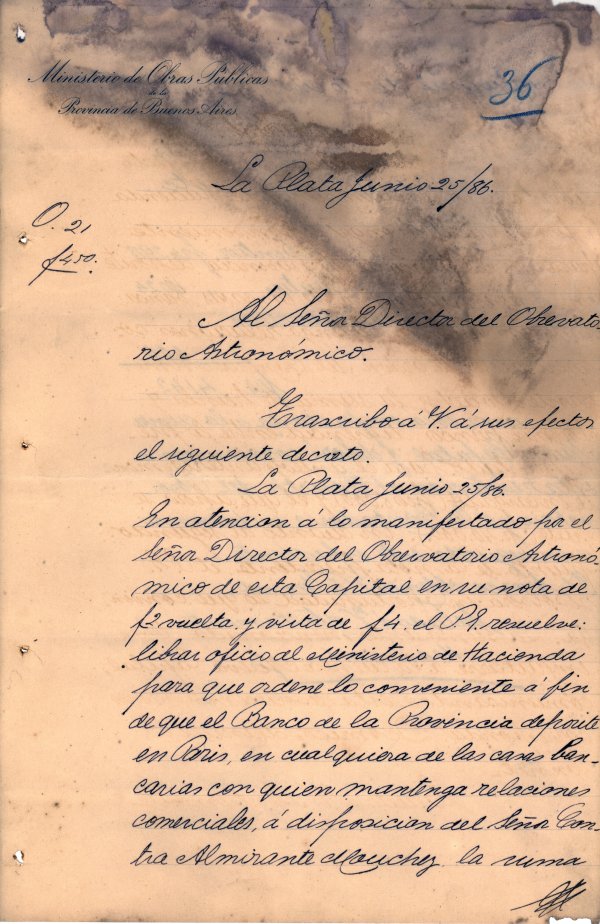 Ministerio de Obras Públicas
de la
Provincia de Buenos Aires
36
La Plata Junio 25/86.
O. 21
f 450.
Al Señor Director del Observato-
rio Astronómico.
Trascribo á V. á sus efectos
el siguiente decreto.
La Plata Junio 25/86.
En atencion á lo manifestado por el
Señor Director del Observatorio Astronó-
mico de esta Capital en su nota de
vuelta, y vista de f 4. el P.E. resuelve:
librar oficio al Ministerio de Hacienda
para que ordene lo conveniente á fin
de que el Banco de la Provincia deposite
en Paris, en cualquiera de las casas ban-
carias con quien mantenga relaciones
comerciales, á disposicion del Señor Con-
tra Almirante Mouchez, la suma